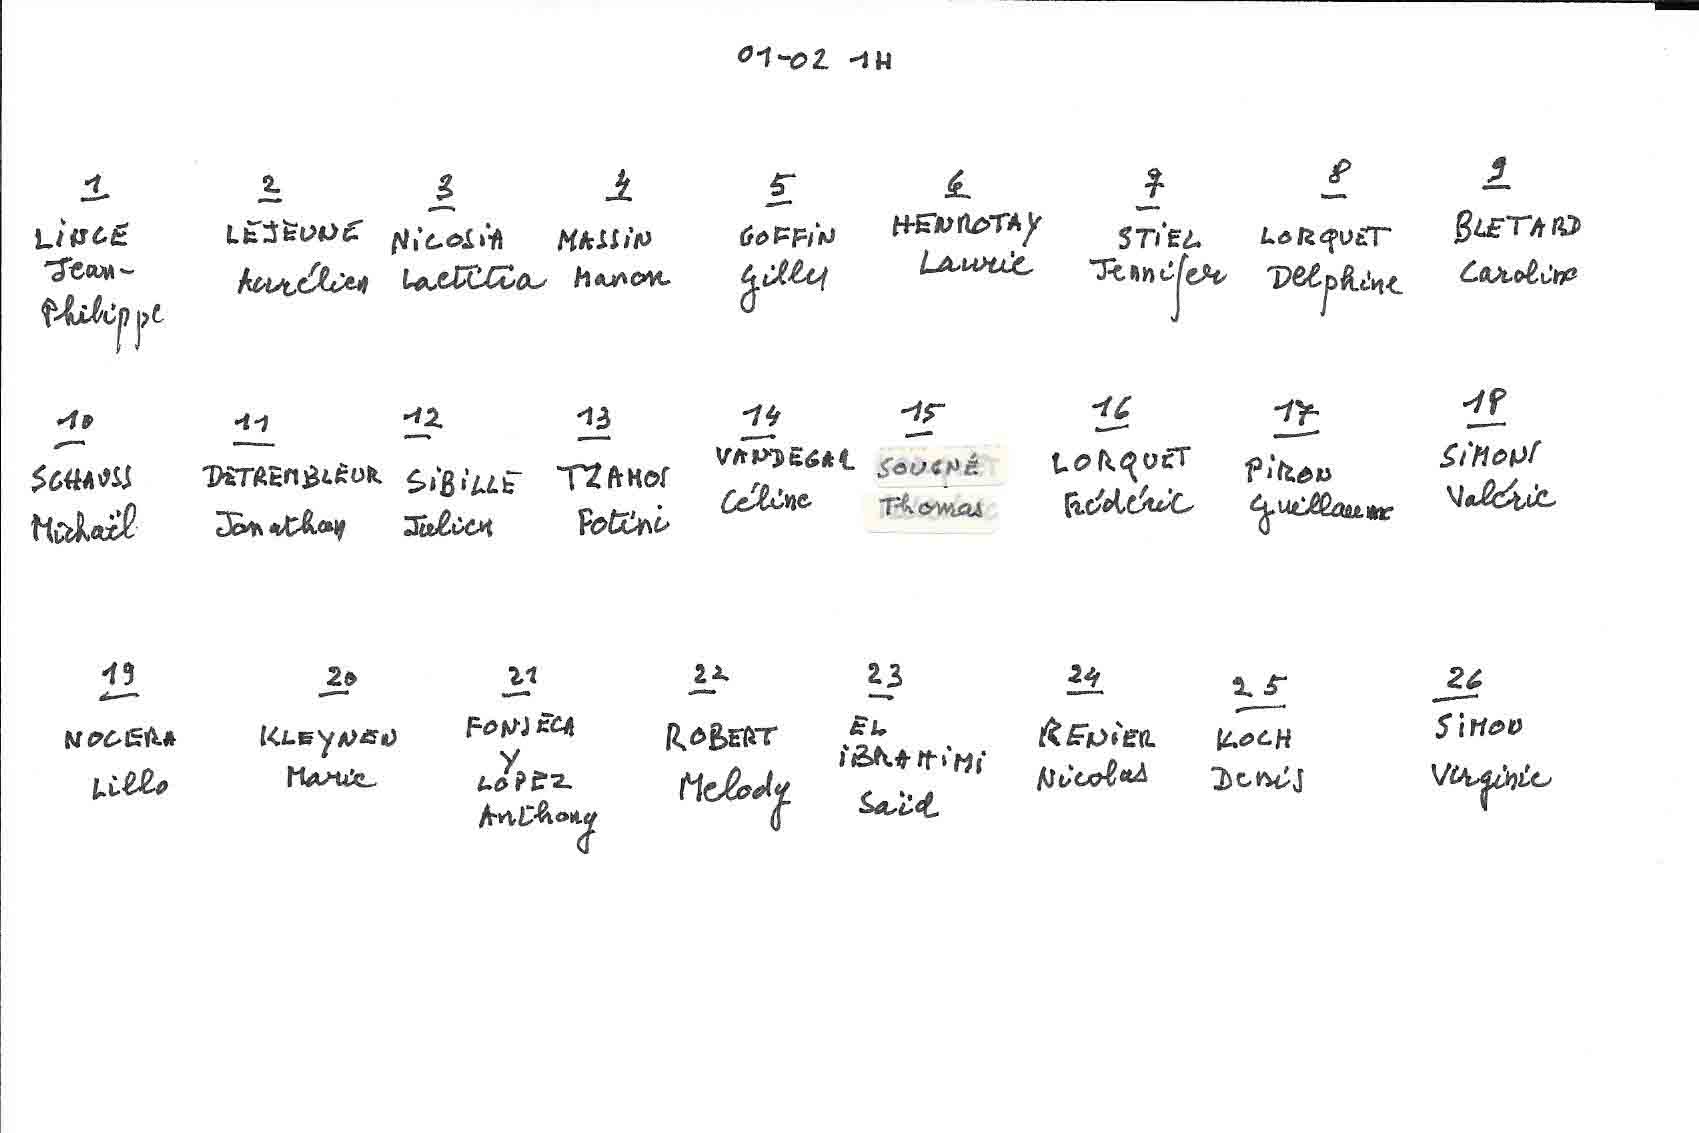 01-02 1H
1 2 3 4 5 6 7 8 9
LINCE LEJEUNE NICOSIA MASSIN GOFFIN HENROTAY STIEL LORQUET BLETARD
Jean- Aurélien Laetitia Manon Gilly Laurie Jennifer Delphine Caroline
Philippe
10 11 12 13 14 15 16 17 18
SCHAUSS DETREMBLEUR SIBILLE TZAMOS VANDEGAR SOUGNÉ LORQUET PIRON SIMONS
Michaël Jonathan Julien Fotini Céline Thomas Frédéric Guillaume Valérie
19 20 21 22 23 24 25 26
NOCERA KLEYNEN FONSECA ROBERT EL RENIER KOCH SIMON
Lillo Marie Y Melody IBRAHIMI Nicolas Denis Virginie
LOPEZ Saïd
Anthony